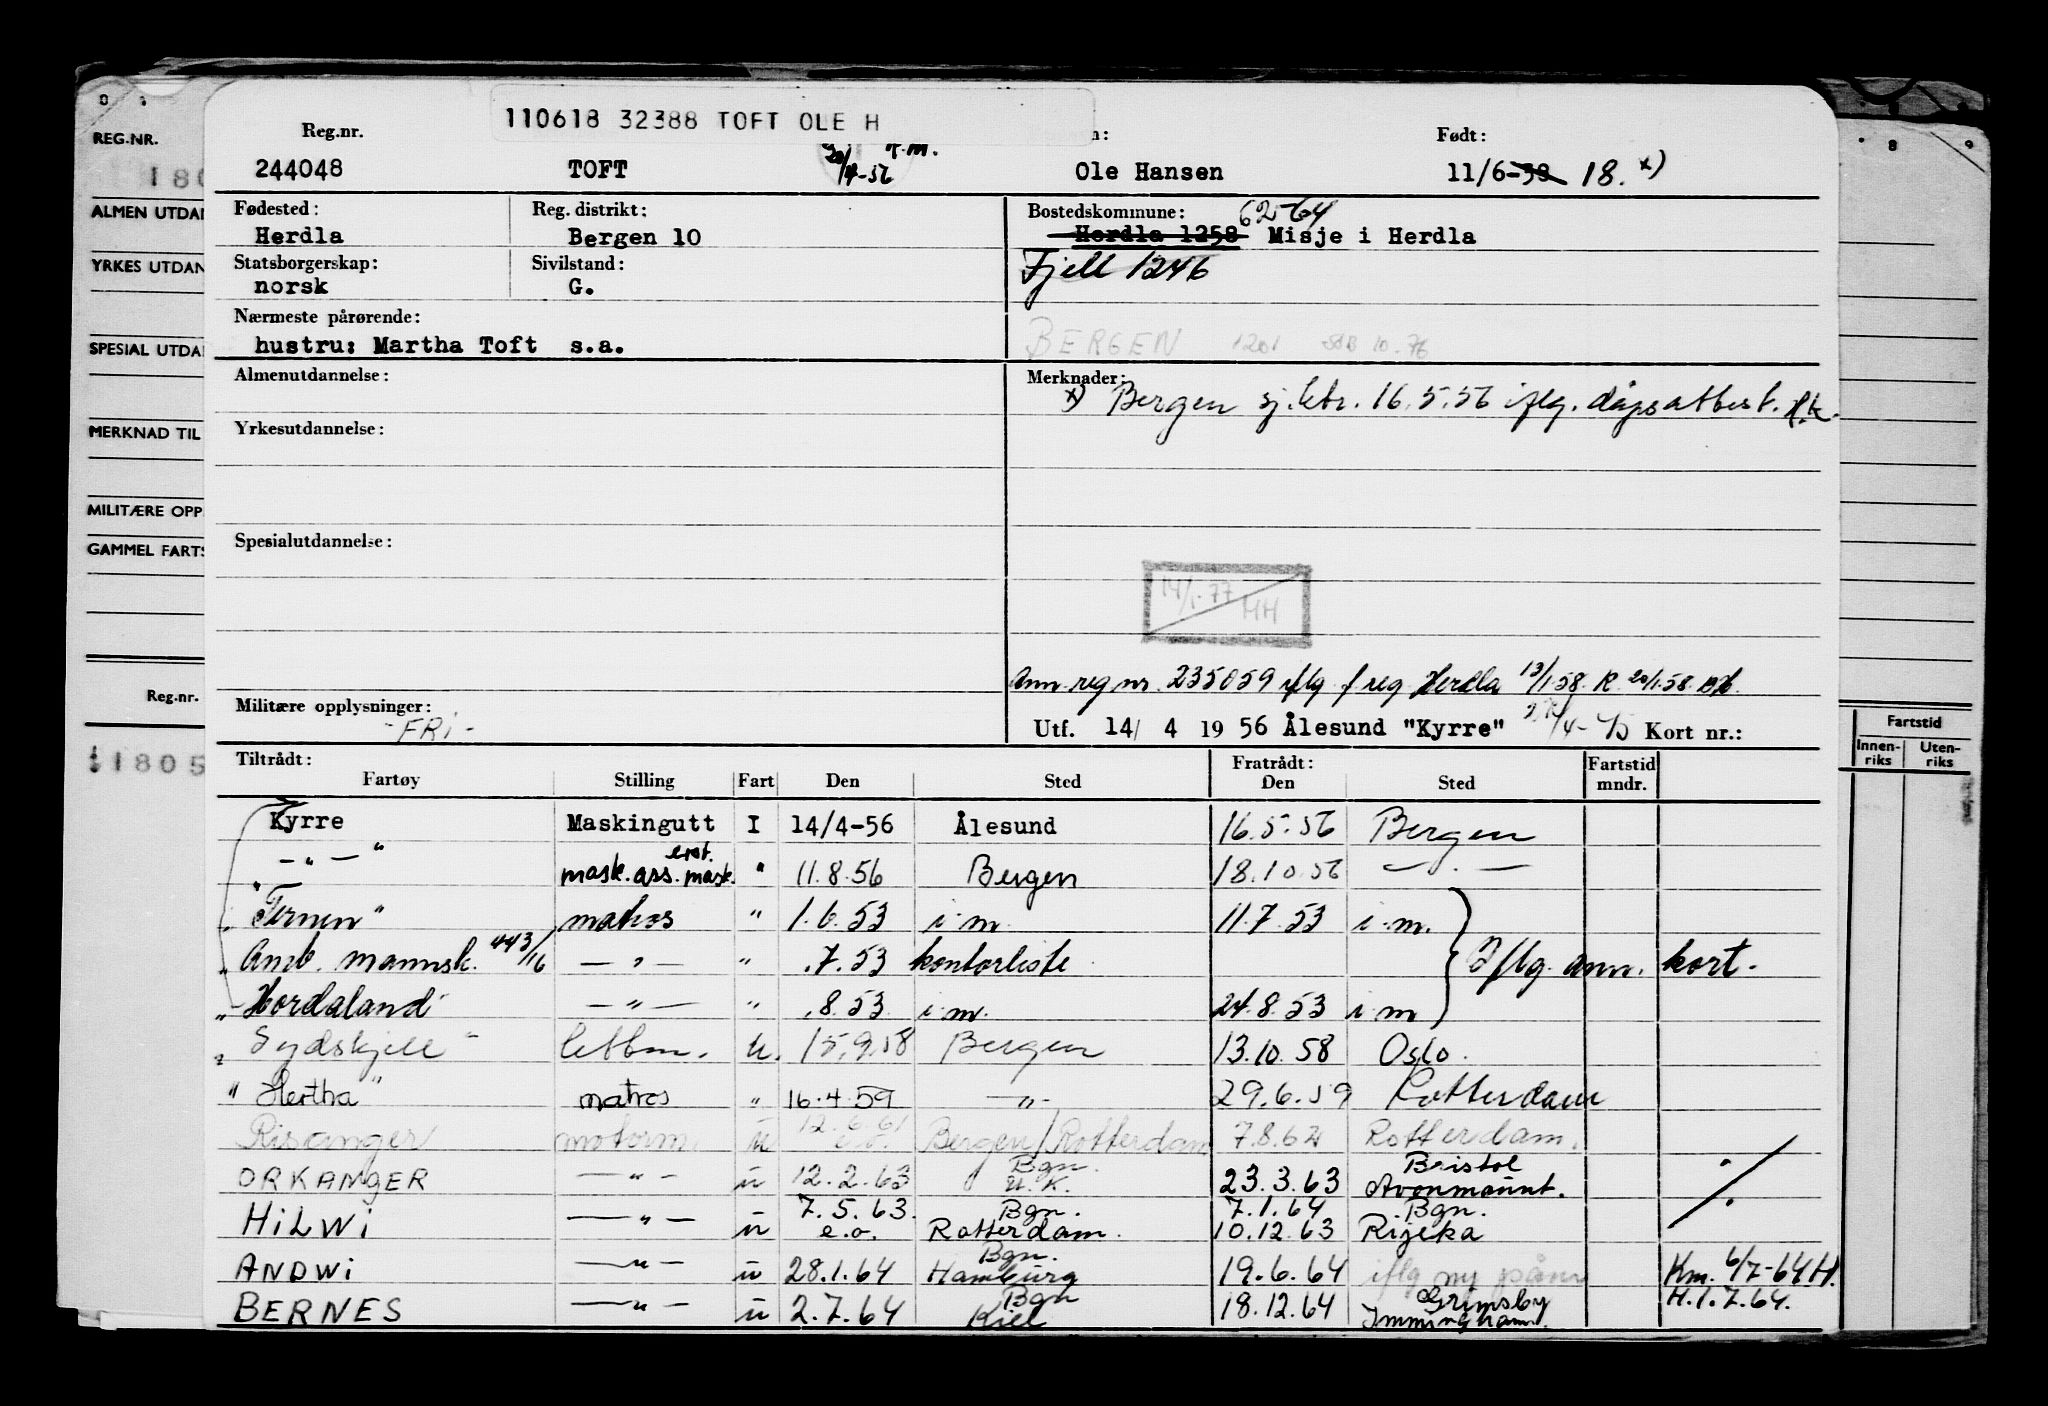 110618 32388 TOFT OLE H
REG.NR. Reg.nr. Født:
180 244048 TOFT 20/4-56 K.M. Ole Hansen 11/6-38 18. x)
ALMEN UTDAN Fødested: Reg. distrikt: Bostedskommune: 62-64
Herdla Bergen 10 Herdla 1258 Misje i Herdla
YRKES UTDAN Statsborgerskap: Sivilstand: Fjell 1246
norsk G.
Nærmeste pårørende:
SPESIAL UTDA hustru: Martha Toft s.a. BERGEN 1201 10.76
Almenutdannelse: Merknader:
x) Bergen sj.ktr. 16.5.56 iflg. dåpsattest.
MERKNAD TIL Yrkesutdannelse:
MILITÆRE OPP.
GAMMEL FARTS Spesialutdannelse:
14/1-77 HH
Ann. reg nr. 235059 iflg f reg Herdla 13/1.58. R 20/1.58.
Reg.nr. Militære opplysninger:
-FRI- Utf. 14/ 4 19 56 Ålesund "Kyrre" Kort nr.:
Fartstid
Innen-riks Uten-riks
11805
Tiltrådt: Fratrådt: Fartstid
Fartøy Stilling Fart Den Sted Den Sted mndr.
Kyrre Maskingutt I 14/4-56 Ålesund 16.5.56 Bergen
— " — " mask.ass. erst. mask. " 11.8.56 Bergen 18.10.56 — . —
"Ternen" matros " 1.6.53 i.m. 11.7.53 i.m.
" Amb. mannsk. 443/16 — " — " .7.53 kontorliste Iflg. ann. kort.
" Hordaland" — " — " .8.53 i.m. 24.8.53 i.m
" Sydskjell " lettm. u. 15.9.58 Bergen 13.10.58 Oslo.
" Hertha " matros " 16.4.59 — " — 29.6.59 Rotterdam
Risanger motorm. u 12.6.61 e.o. Bergen/Rotterdam 7.8.62 Rotterdam.
ORKANGER — " — u 12.2.63 Bgn. U.K. 23.3.63 Bristol Avonmount.
HILWI — " — u 7.5.63. e.o. Bgn. Rotterdam. 7.1.64 10.12.63 Bgn. Rijeka
ANDWI — " — u 28.1.64 Bgn. Hamburg 19.6.64 iflg ny påm Km. 6/7-64 H.
BERNES — " — u 2.7.64 Bgn Kiel 18.12.64 Grimsby Immingham. H.1.7.64.